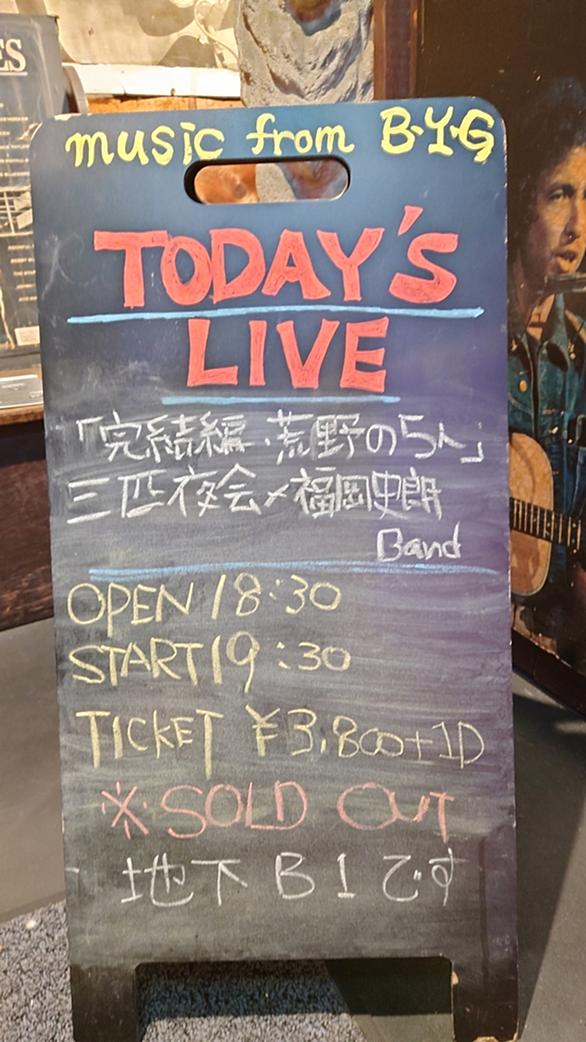 ES
music from B·Y·G
TODAY'S
LIVE
「完結編・荒野の5人」
三匹夜会×福岡史朗
Band
OPEN 18:30
START 19:30
TICKET ¥3,800+1D
※SOLD OUT
地下 B1 です